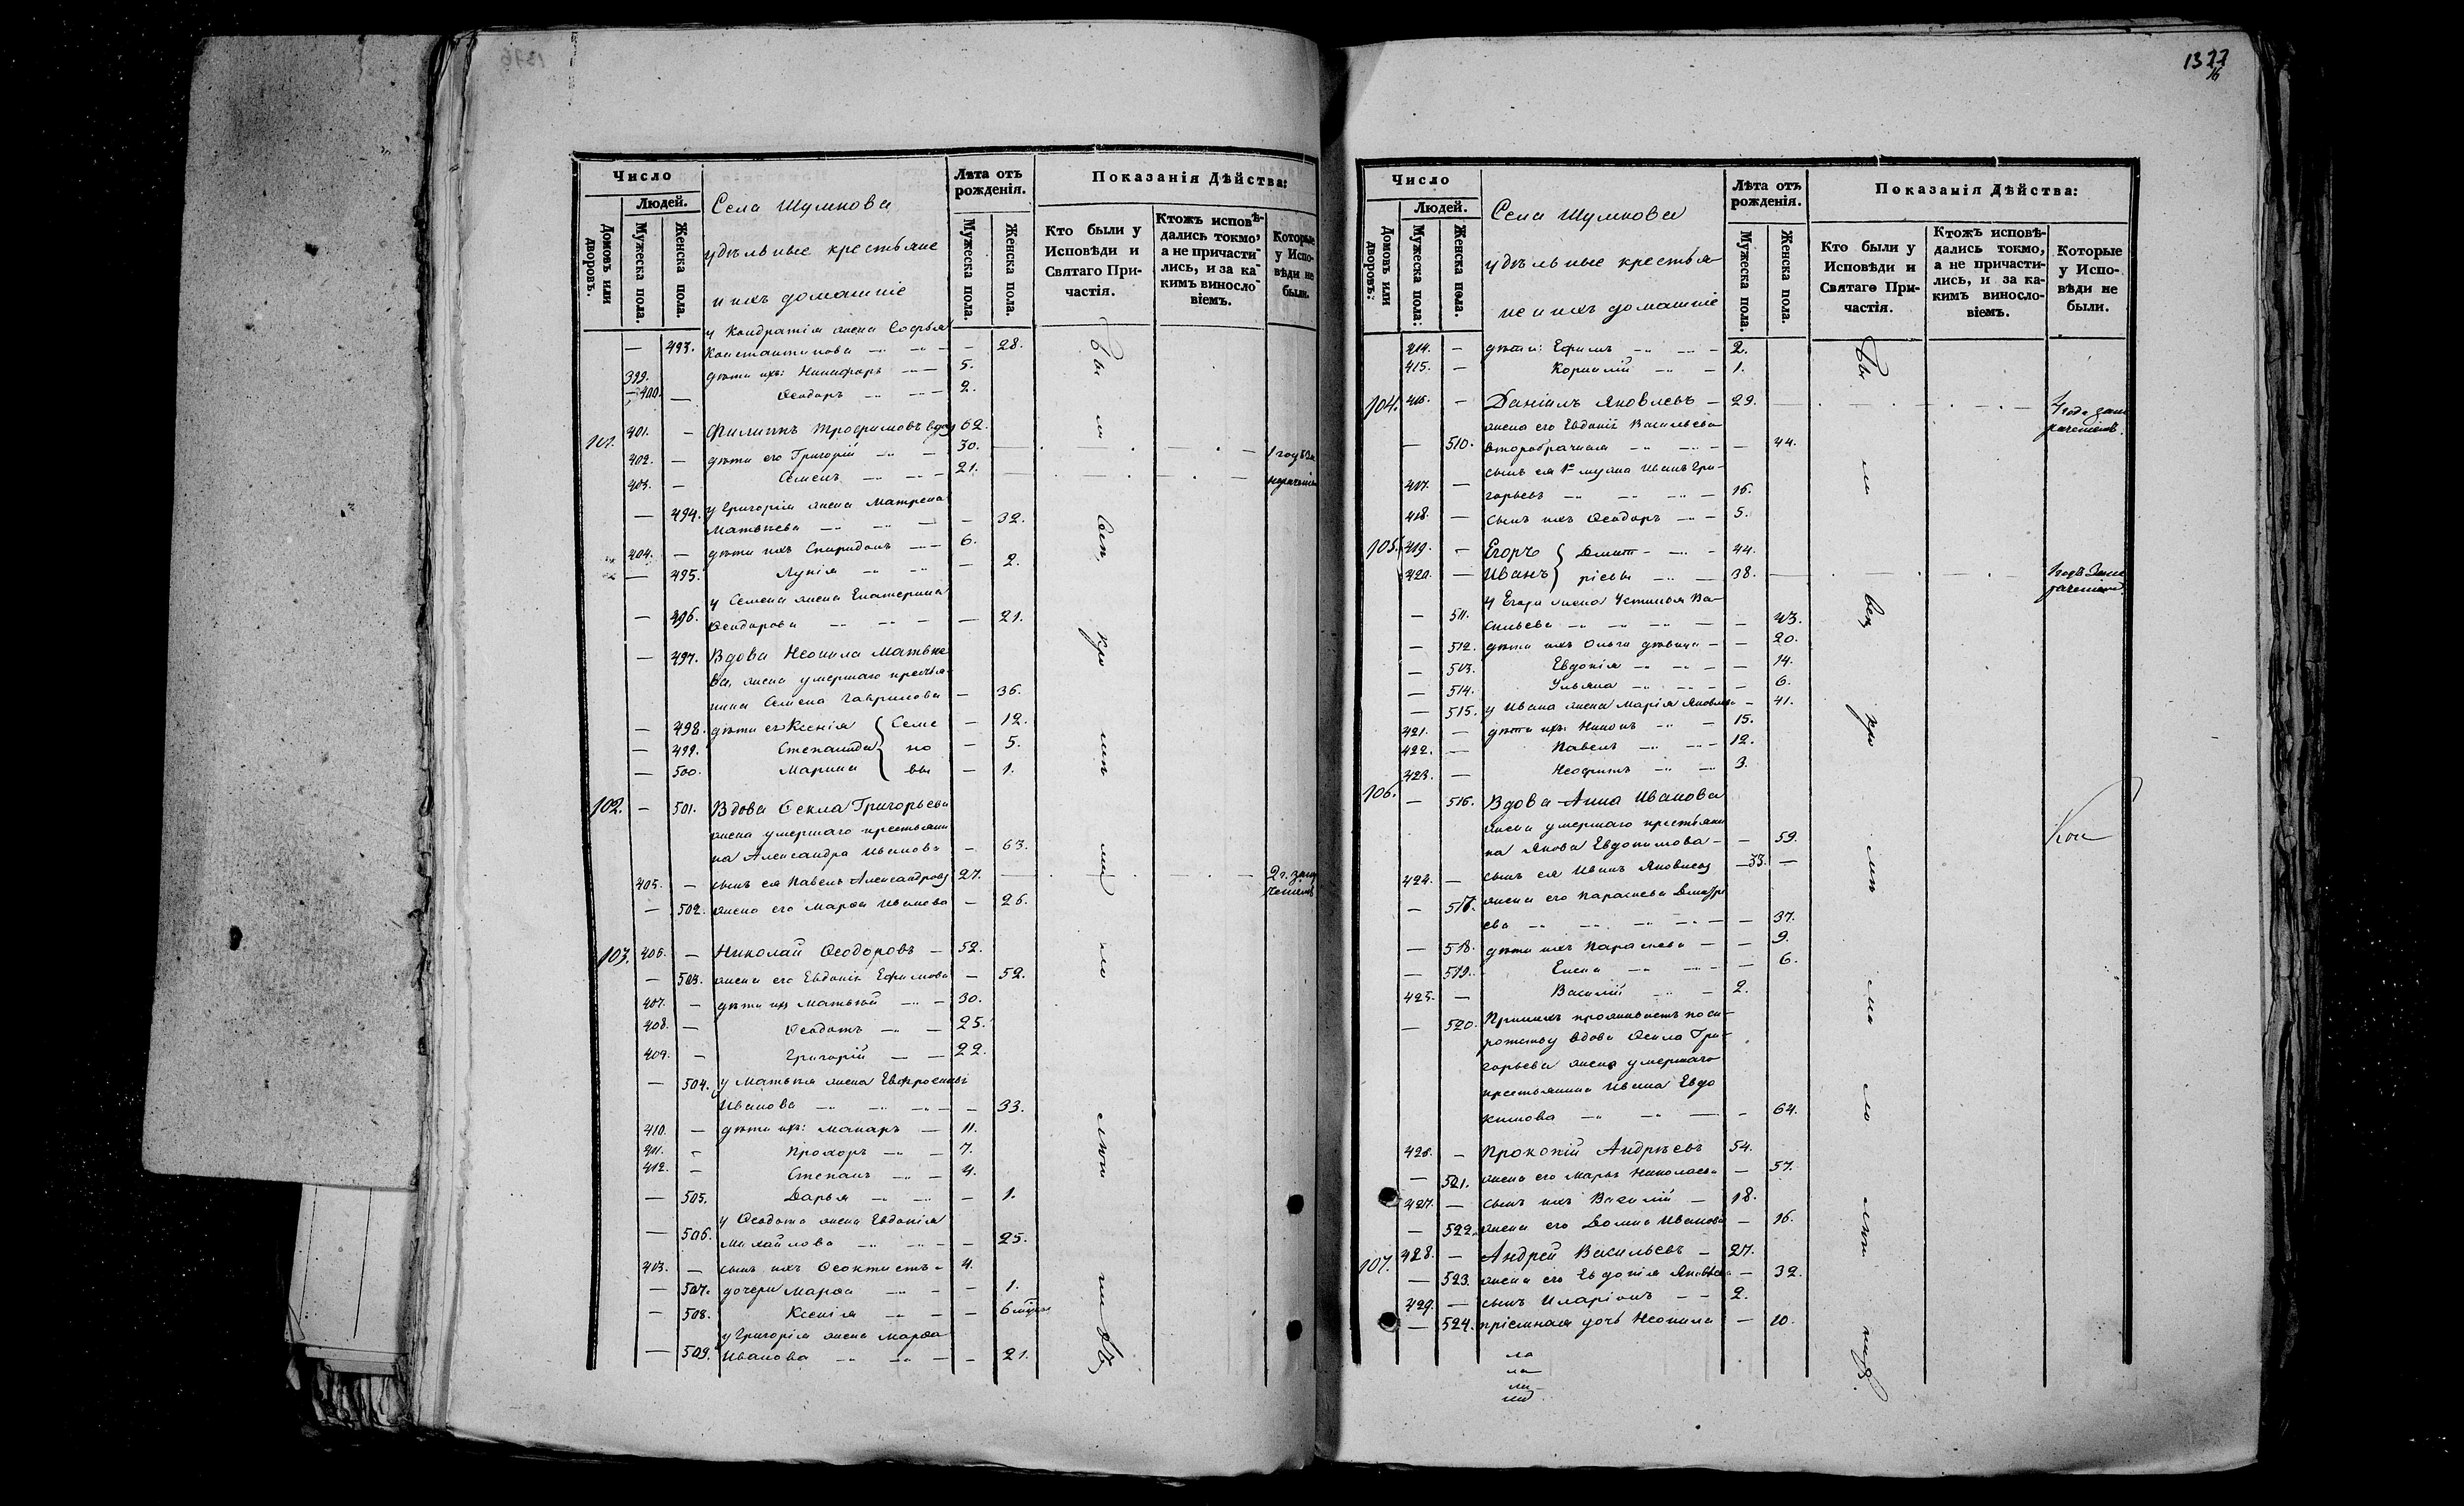 Число
Людей.
Домовъ или дворовъ.
Мужеска пола.
Женска пола.
Села Шумкова
удѣльные крестьяне
и ихъ домашніе
Лѣта отъ рожденія.
Мужеска пола.
Женска пола.
Показанія Дѣйства:
Кто были у Исповѣди и Святаго Причастія.
Ктожъ исповѣдались токмо, а не причастились, и за какимъ винословіемъ.
Которые у Исповѣди не были.
у Кондратія жена Софья
— 493. Константинова — 28.
399. дѣти ихъ: Никифоръ — 5.
400. — Ѳеодоръ — 2.
101. 401. — Филиппъ Трофимовъ вдов 62.
402. — дѣти его Григорій — 30.
403. — Семенъ — 21.
— 494. у Григорія жена Матрена
Матвѣева — 32.
404. — дѣти ихъ Спиридонъ — 6.
— 495. Лукія — 2.
у Семена жена Екатерина
— 496. Ѳеодорова — 21.
— 497. Вдова Неонила Матвѣе
ва, жена умершаго крестья-
нина Семена Гаврилова — 36.
— 498. дѣти ея Ксенія Семе — 12.
— 499. Степанида но — 5.
— 500. Марина вы — 1.
102. — 501. Вдова Ѳекла Григорьева
жена умершаго крестьяни
на Александра Иванова — 63.
405. — сынъ ея Павелъ Александровъ 27.
— 502. жена его Марѳа Иванова — 26.
103. 406. — Николай Ѳеодоровъ — 52.
— 503. жена его Евдокія Ефимова — 52.
407. — дѣти ихъ Матвѣй — 30.
408. — Ѳеодотъ — 25.
409. — Григорій — 22.
— 504. у Матвѣя жена Евфросинья
Иванова — 33.
410. — дѣти ихъ: Макаръ — 11.
411. — Прохоръ — 7.
412. — Степанъ — 4.
— 505. Дарья — 1.
у Ѳеодота жена Евдокія
— 506. Михайлова — 25.
413. — сынъ ихъ Ѳеоктистъ — 4.
— 507. дочери Марѳа — 1.
— 508. Ксенія — 6
у Григорія жена Марѳа
— 509. Иванова — 21.
1322
16
Число
Людей.
Домовъ или дворовъ:
Мужеска пола:
Женска пола.
Села Шумкова
удѣльные крестья-
не и ихъ домашніе
Лѣта отъ рожденія.
Мужеска пола.
Женска пола.
Показанія Дѣйства:
Кто были у Исповѣди и Святаго Причастія.
Ктожъ исповѣдались токмо, а не причастились, и за какимъ винословіемъ.
Которые у Исповѣди не были.
414. — дѣти: Ефимъ — 2.
415. — Корнилій — 1.
104. 416. — Даніилъ Яковлевъ — 29.
жена его Евдокія Васильева
— 510. второбрачная — 44.
сынъ ея 1го мужа Иванъ Гри-
417. — горьевъ — 16.
418. — сынъ ихъ Ѳеодоръ — 5.
105. 419. — Егоръ Дмит- — 44.
420. — Иванъ ріевы — 38.
у Егора жена Устинья Ва-
— 511. сильева — 43.
— 512. дѣти ихъ Ольга дѣвица — 20.
— 513. Евдокія — 14.
— 514. Ульяна — 6.
— 515. у Ивана жена Марія Яковлева — 41.
421. — дѣти ихъ: Никонъ — 15.
422. — Павелъ — 12.
423. — Неофитъ — 3.
106. — 516. Вдова Анна Иванова
жена умершаго крестьяни
на Якова Евдокимова — 59.
424. — сынъ ея Иванъ Яковлевъ — 33. —
— 517. жена его Параскева Дмитрі
ева — 37.
— 518. дѣти ихъ Параскева — 9.
— 519. Елена — 6.
425. — Василій — 2.
— 520. При нихъ проживаетъ по си-
ротству вдова Ѳекла Гри-
горьева жена умершаго
крестьянина Ивана Евдо
кимова — 64.
426. — Прокопій Андреевъ 54.
— 521. жена его Марья Николаева — 57.
427. — сынъ ихъ Василій — 18.
— 522. жена его Домна Иванова — 16.
107. 428. — Андрей Васильевъ — 27.
— 523. жена его Евдокія Яковлева — 32.
429. — сынъ Иларіонъ — 2.
— 524. пріемная дочь Неонила — 10.